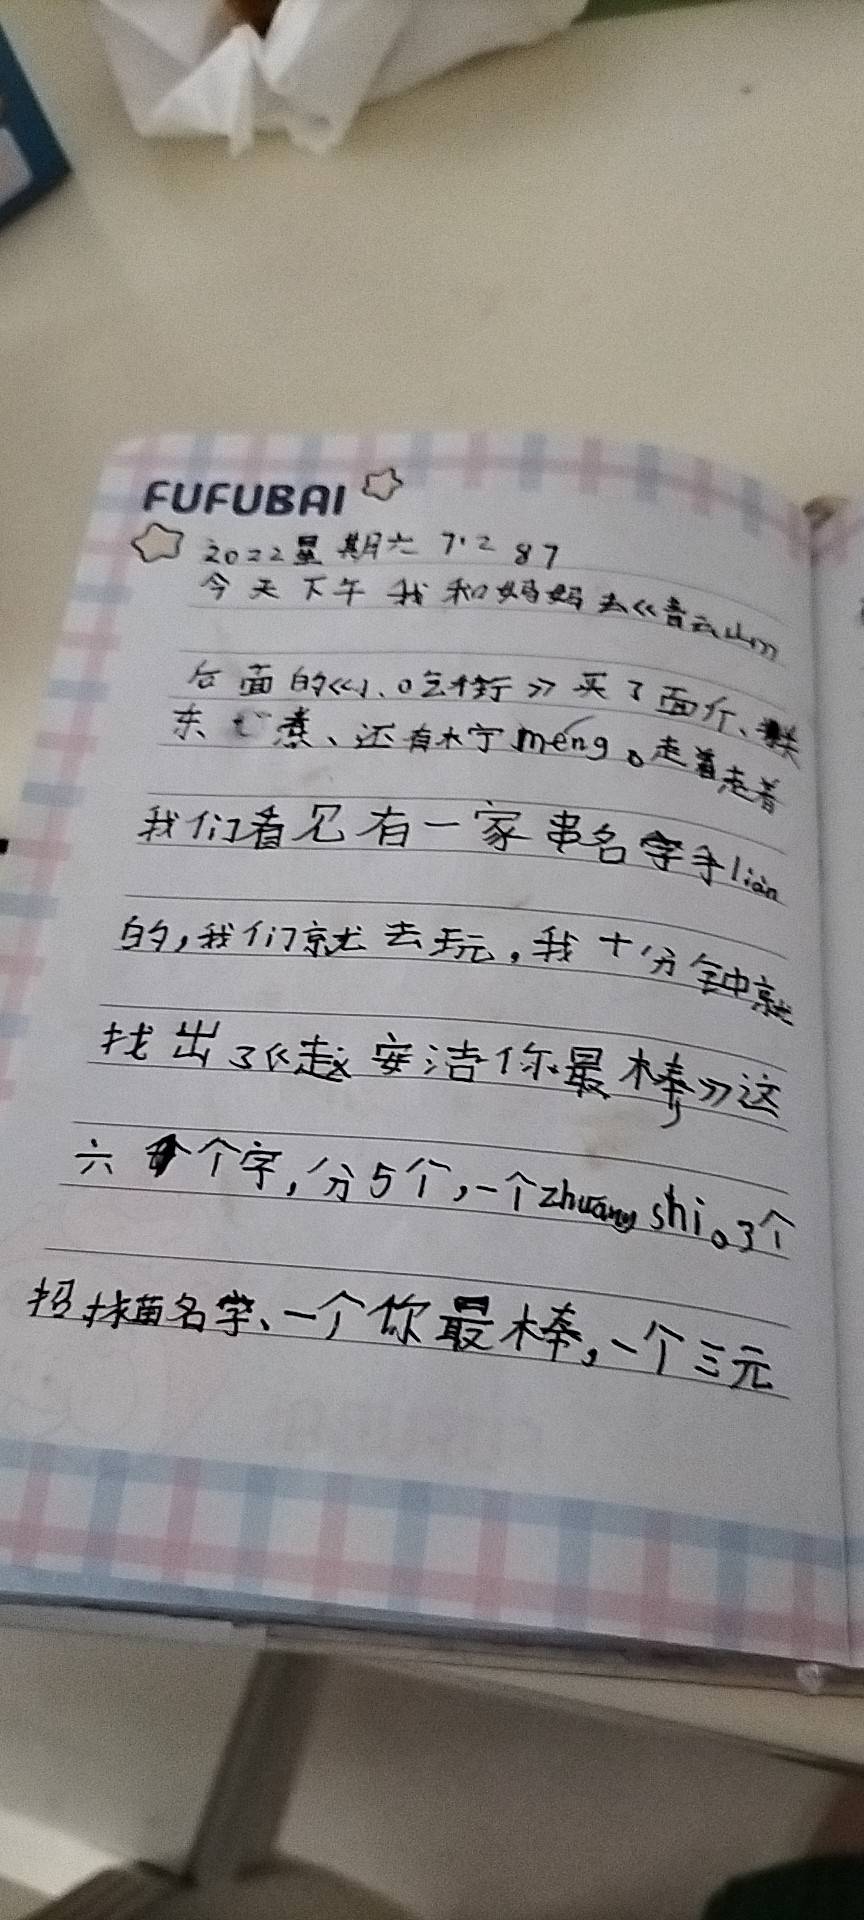 FUFUBAI
2022星期六 7.2 87
今天下午我和妈妈去《青云山》
后面的《小吃街》买了面斤、关
东煮、还有木宁meng。走着走着
我们看见有一家串名字手lián
的,我们就去玩,我十分钟就
找出了《赵安洁你最棒》这
六个字,分5个,一个zhuang shi。3个
名字、一个你最棒,一个三元